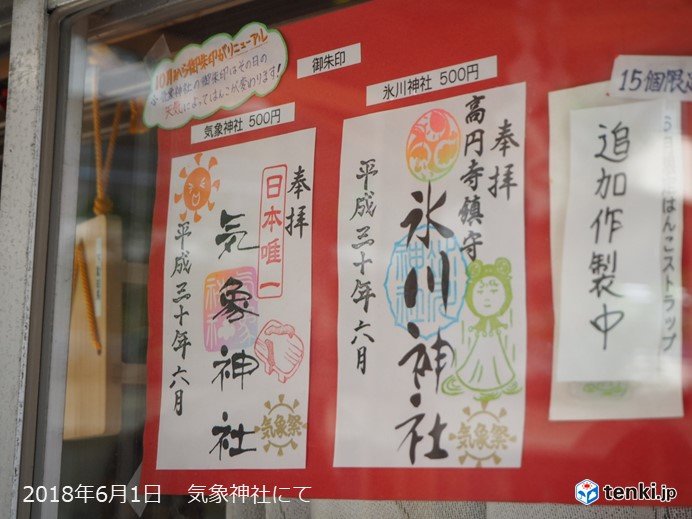 10月から御朱印がリニューアル
気象神社の御朱印はその日の
天気によってはんこが変わります！
御朱印
気象神社 500円
氷川神社 500円
奉拝
日本唯一
気象神社
平成三十年六月
気象祭
奉拝
高円寺鎮守
氷川神社
平成三十年六月
気象祭
15個限定
はんこストラップ
追加作製中
2018年6月1日 気象神社にて
tenki.jp